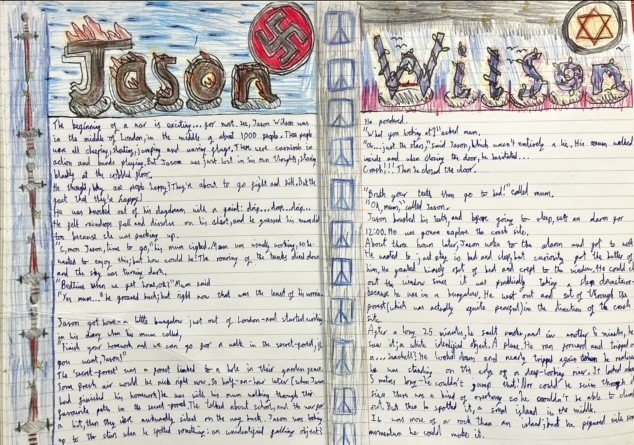 Jason
The beginning of a war is exciting... for most. See, Jason Wilson was
in the middle of London, in the middle of about 1,000 people. Then people
were all cheering, shouting, and waving flags. There were carnivals in
action and bands playing. But Jason was just lost in his own thoughts, staring
blankly at the cobbled floor.
He thought, why are people happy? They're about to go fight and kill. But the
fact that they're happy!
He was knocked out of his daydream with a faint: drip... drop... drip...
He felt raindrops fall and dissolve on his shirt, and he guessed his mum did
too because she was packing up.
"C'mon Jason, time to go," his mum sighed. Mum was usually working, so he
wanted to enjoy this; but how could he? The roaring of the tanks died down
and the sky was turning dark.
"Bedtime when we get home, ok?" Mum said
"Yes mum..." he groaned back, but right now that was the least of his worries.
Jason got home - a little bungalow just out of London - and started working
in his diary when his mum called,
"Finish your homework and we can go for a walk in the secret-forest, if
you want, Jason!"
The 'secret-forest' was a forest linked to a hole in their garden fence.
Some fresh air would be nice right now. So half-an-hour later (when Jason
had finished his homework) he was with his mum walking through their
favourite path in the secret-forest. They talked about school, and the war for
a bit, then they were eventually silent on the walk. Jason was looking
up to the stars when he spotted something: an unidentified falling object?
Wilson
He pondered.
"What you looking at?" asked mum.
"Oh... just the stars," said Jason, which wasn't entirely a lie. His mum walked
inside and when closing the door, he hesitated...
Crash!!! Then he closed the door.
"Brush your teeth then go to bed!" called mum.
"Ok, mum," called Jason.
Jason brushed his teeth, and before going to sleep, set an alarm for
12:00. He was gonna explore the crash site.
About three hours later, Jason woke to the alarm and got to work.
He wanted to just stay in bed and sleep, but curiosity got the better of
him. He granted himself out of bed and crept to the window. He could
out the window since it was practically taking a step downstairs
because he was in a bungalow. He went out and set of through the
forest (which was actually quite peaceful) in the direction of the crash
site.
After a long 25 minutes, he smelt smoke, and in another 5 minutes, he
saw it; a white identified object. A plane. He ran forward and tripped on
a... seashell? He looked down, and nearly tripped again when he realised
he was standing on the edge of a deep-looking river. It looked about
5 metres long - he couldn't jump that! Nor could he swim through it
since there was a kind of overhang so he wouldn't be able to climb
out. But then he spotted it, a small island in the middle.
It was more of a rock than an island, but he figured with some
momentum he could make it.